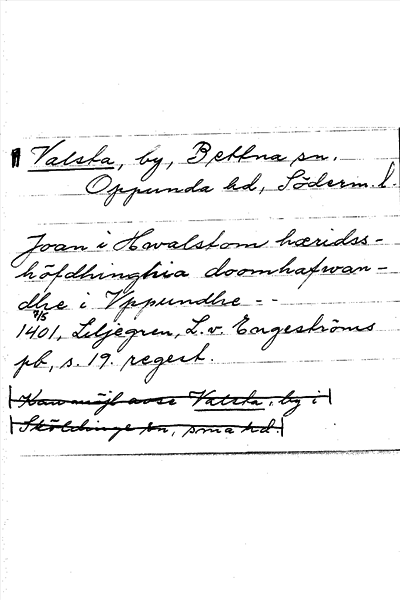 Valsta, by, Bettna sn.
Oppunda hd, Söderm. l.
Joan i Hwalstom hæridss-
höfdhinghia doomhafwan-
dhe i Vppundhe --
7/5
1401, Liljegren, L. v. Engeströms
pb, s. 19. regest.
Kan möjl avse Valsta, by i
Sköldinge sn, sma hd.